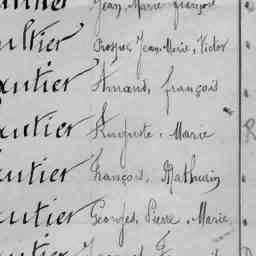 Jean, Marie François
ultier Prosper, Jean, Marie, Victor
autier Amand, françois
autier Auguste, Marie
autier François, Mathurin
autier Georges, Pierre, Marie